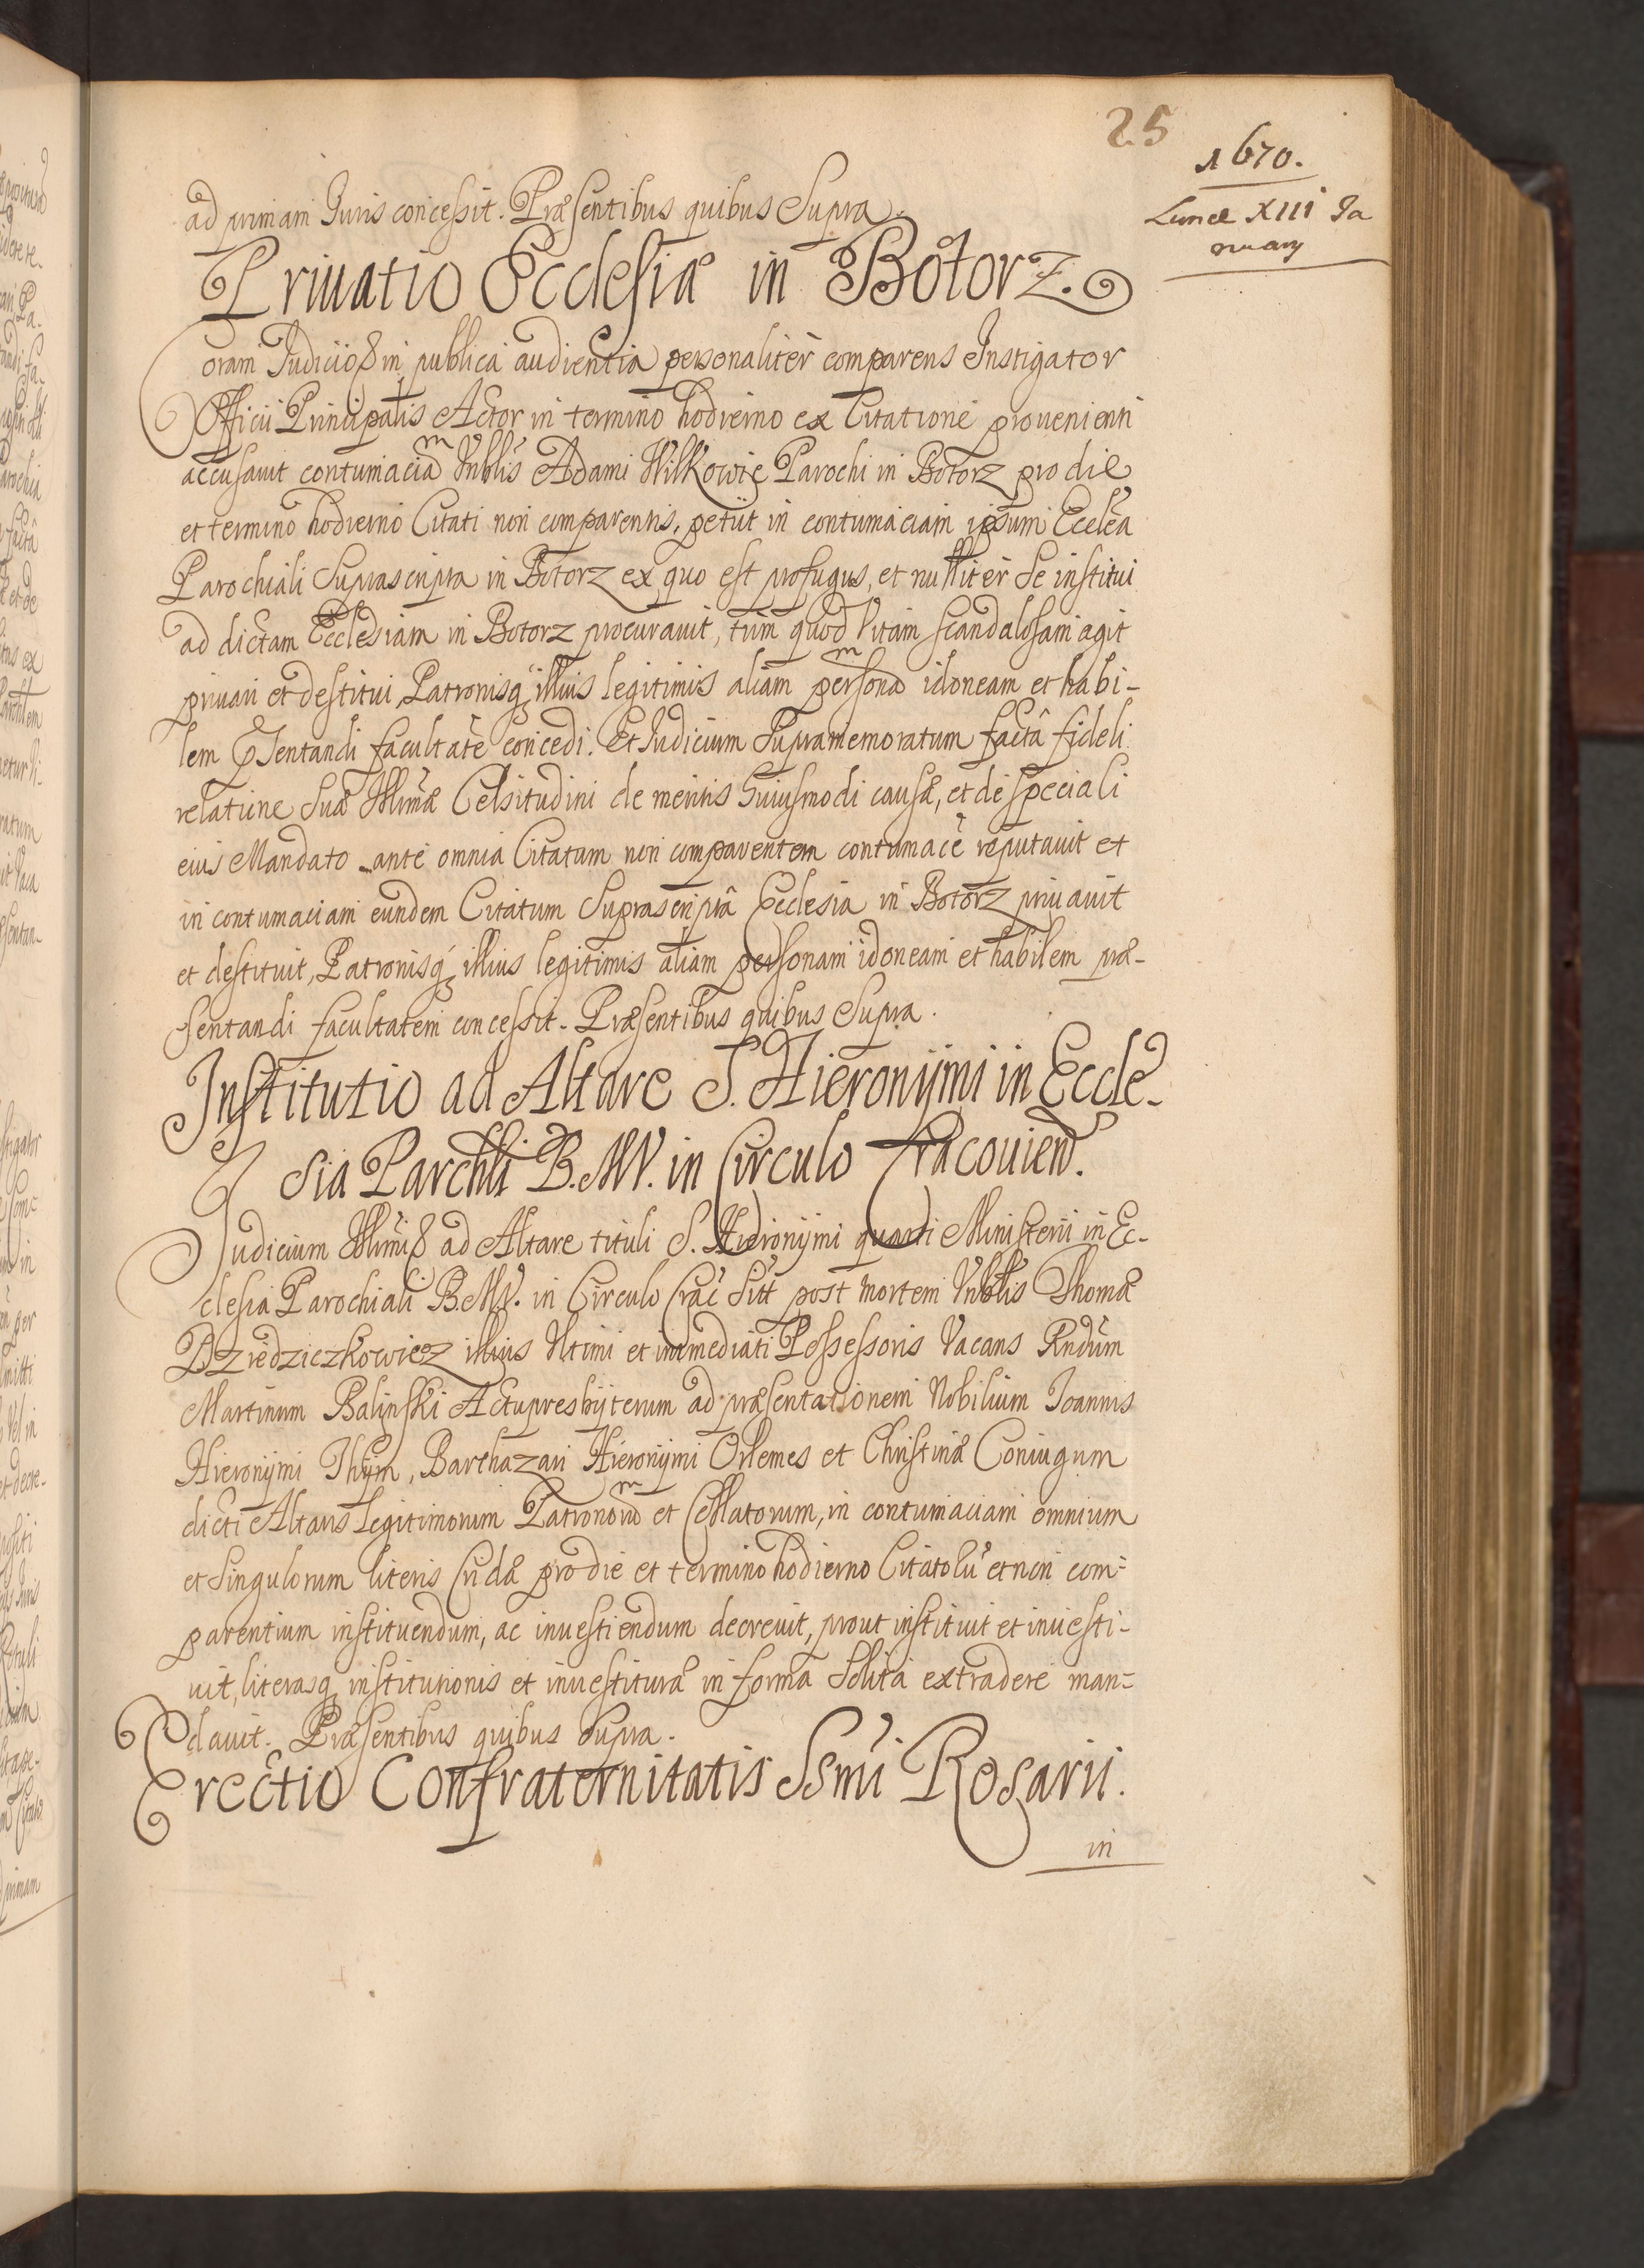 25
1670.
Lunæ XIII Ja
nuarij
ad primam Juris concessit. Præsentibus quibus Supra.
Priuatio Ecclesiæ in Botorz.
Coram Judicio & in publica audientia personaliter comparens Instigator
Officii Principalis Actor in termino hodierno ex Citatione prouenienti
accusauit contumaciam Vnblis Adami Wilkowic Parochi in Botorz pro die
et termino hodierno Citati non comparentis, petiit in contumaciam ipsum Eccleã
Parochiali Suprascripta in Botorz ex quo est profugus, et nulliter se institui
ad dictam Ecclesiam in Botorz procurauit, tum quod Vitam scandalosam agit
priuari et destitui, Patronisq illius legitimis aliam personam idoneam et habi-
lem pñsentandi facultatē concedi. Et Judicium Supramemoratum factâ fideli
relatione Suæ Illmæ Celsitudini de meritis huiusmodi causæ, et de speciali
eius Mandato ante omnia Citatum non comparentem contumacē reputauit et
in contumaciam eundem Citatum Suprascriptâ Ecclesia in Botorz priuauit
et destituit, Patronisq illius legitimis aliam personam idoneam et habilem præ-
sentandi facultatem concessit. Præsentibus quibus Supra.
Institutio ad Altare S. Hieronijmi in Eccle-
sia Parchli B.M.V. in Circulo Cracouien.
Judicium Illmi & ad Altare tituli S. Hieronijmi quarti Ministerii in Ec-
clesia Parochiali B.M.V. in Circulo Crac̃ Siti post mortem Vnblis Thomæ
Dziedziczkowicz illius Vltimi et immediati Possessoris Vacans Rndum
Martinum Balinski Actupresbijterum ad præsentationem Nobilium Joannis
Hieronijmi Thijm, Barthazari Hieronijmi Orlemes et Christinæ Coniugum
dicti Altaris legitimorum Patronorum et Collatorum, in contumaciam omnium
et singulorum literis Cridæ pro die et termino hodierno Citatorū et non com-
parentium instituendum, ac inuestiendum decreuit, prout instituit et inuesti-
uit, literasq institutionis et inuestituræ in forma Solita extradere man-
dauit. Præsentibus quibus Supra.
Erectio Confraternitatis Ssmi Rosarii.
in